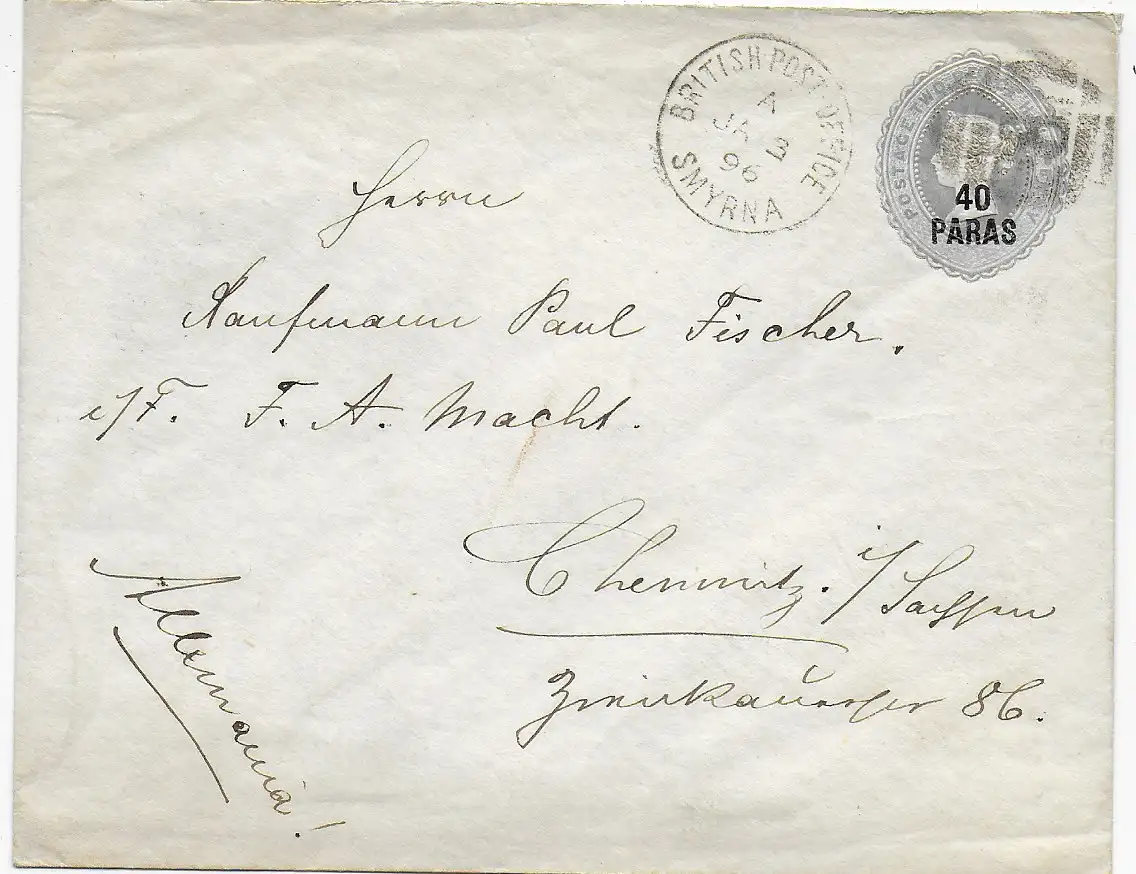 BRITISH POST OFFICE
A
JA 3
96
SMYRNA
POSTAGE TWO
40
PARAS
Herrn
Kaufmann Paul Fischer.
i/F. F. A. Macht.
Chemnitz. i/Sachsen
86.
Allemania!